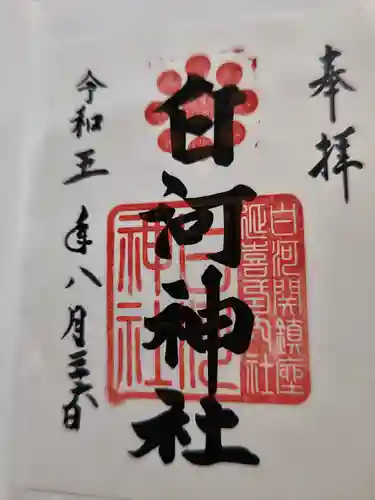 奉拝
白河神社
白河関鎮座
延喜式内社
白河
神社
令和五年八月二六日